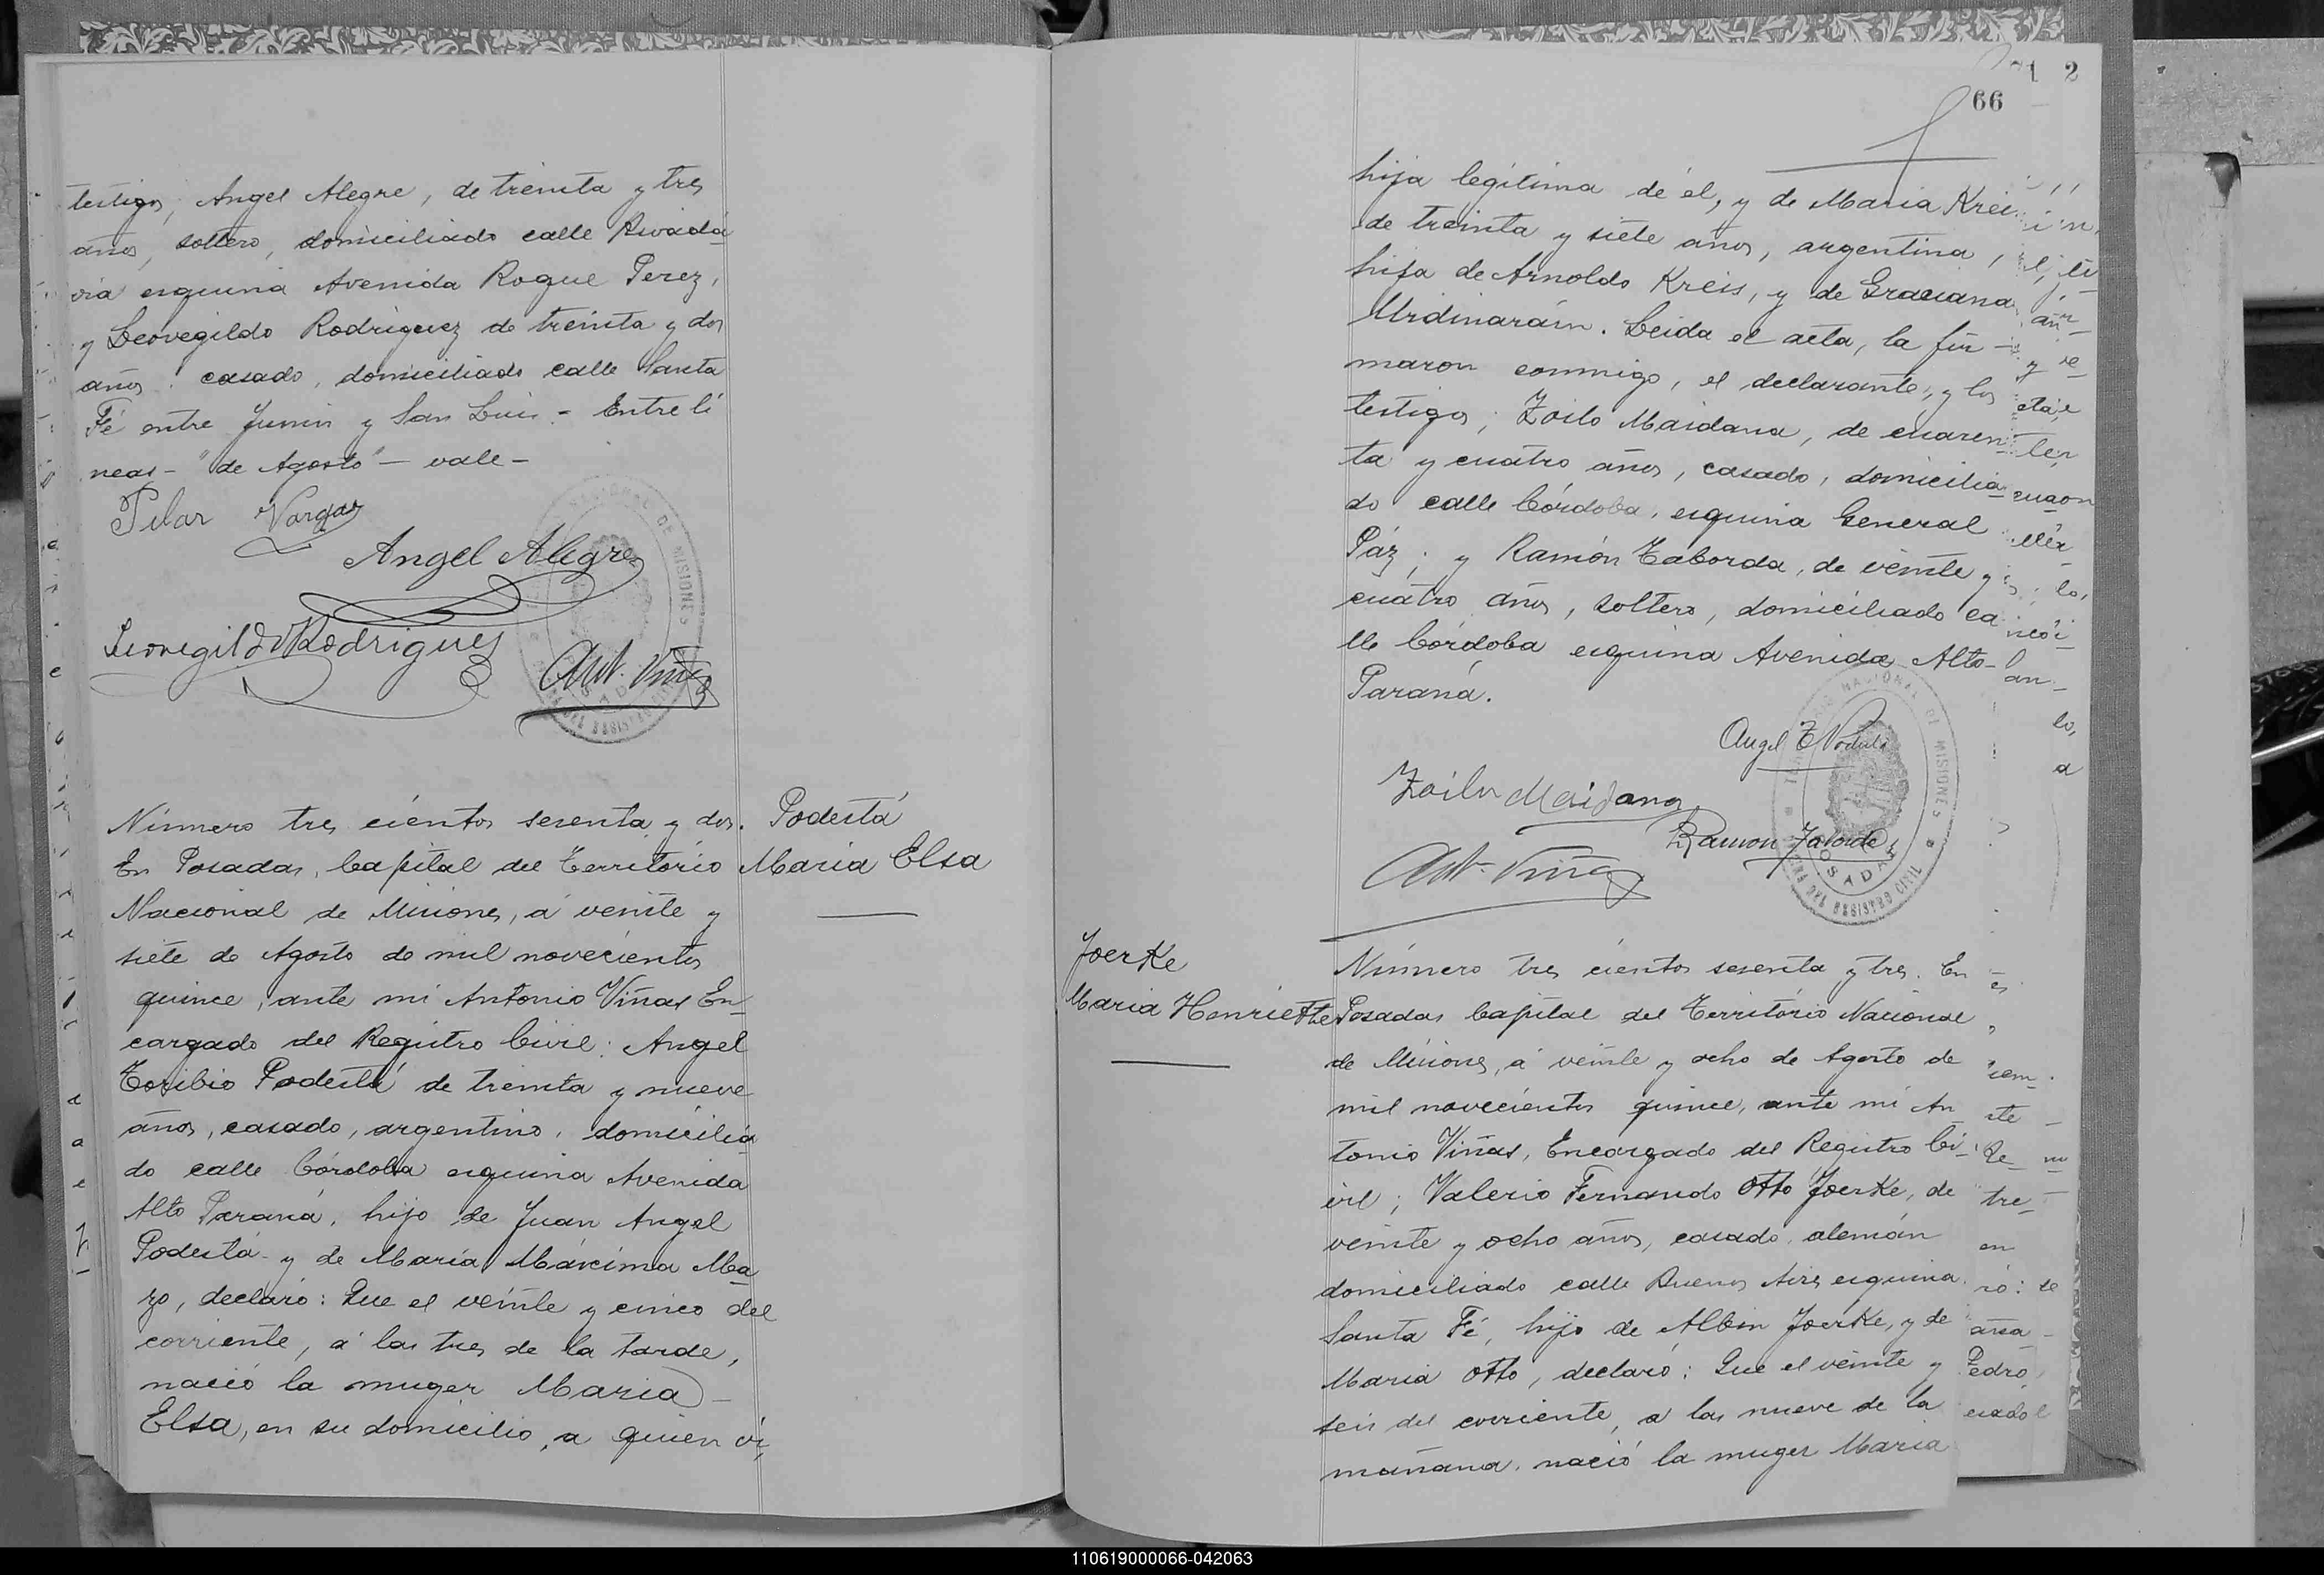 testigos, Angel Alegre, de treinta y tres
años, soltero, domiciliado calle Rivada
via esquina Avenida Roque Perez,
y Leovegildo Rodriguez de treinta y dos
años, casado, domiciliado calle Santa
Fé entre Junin y San Luis - Entre li
neas - "de Agosto" - vale -
Pilar Vargas
Angel Alegre
Leovegildo Rodrigues
Ant. Viñas
Número tres cientos sesenta y dos.
En Posadas, Capital del Territorio
Nacional de Misiones, á veinte y
siete de Agosto de mil novecientos
quince, ante mi Antonio Viñas En-
cargado del Registro Civil: Angel
Toribio Podestá de treinta y nueve
años, casado, argentino, domicilia
do calle Córdoba esquina Avenida
Alto Paraná, hijo de Juan Angel
Podestá y de María Máxima Ma
zo, declaró: Que el veinte y cinco del
corriente, á las tres de la tarde,
nació la muger Maria
Elsa, en su domicilio, a quien ví,
Podestá
Maria Elsa
1 2
66
hija legítima de él, y de Maria Kreis
de treinta y siete años, argentina,
hija de Arnoldo Kreis, y de Graciana
Urdinaráin. Leida el acta, la fir-
maron conmigo, el declarante, y los
testigos; Zoilo Maidana, de cuaren
ta y cuatro años, casado, domicilia
do calle Córdoba, esquina General
Páz; y Ramón Taborda, de veinte y
cuatro años, soltero, domiciliado ca
lle Córdoba esquina Avenida Alto-
Paraná.
Angel T Podestá
Zoilo Maidana
Ramon Taborda
Ant. Viñas
Joerke
Maria Henriette
Número tres cientos sesenta y tres. En
Posadas Capital del Territorio Nacional
de Misiones, á veinte y ocho de Agosto de
mil novecientos quince, ante mi An
tonio Viñas, Encargado del Registro Ci-
vil; Valerio Fernando Otto Joerke, de
veinte y ocho años, casado, alemán
domiciliado calle Buenos Aires esquina
Santa Fé, hijo de Albin Joerke, y de
Maria Otto, declaró: Que el veinte y
seis del corriente, a las nueve de la
mañana, nació la muger Maria
110619000066-042063